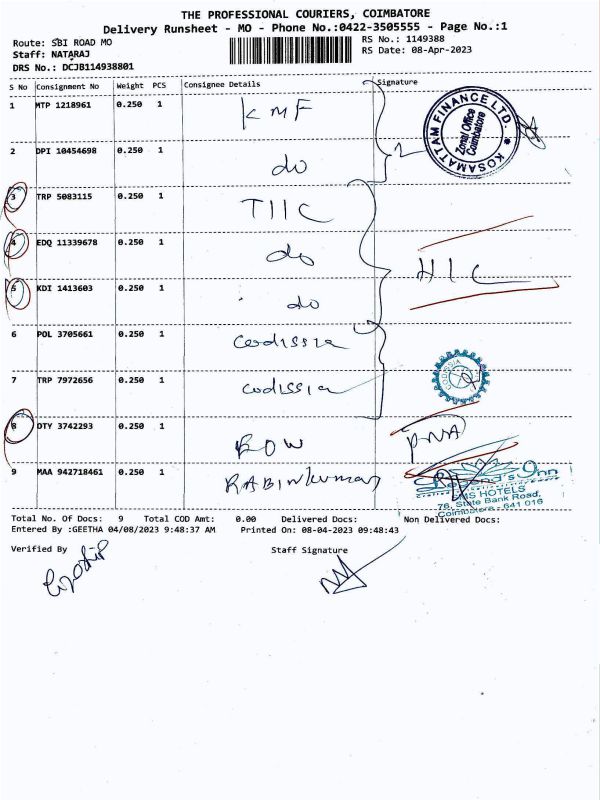 THE PROFESSIONAL COURIERS, COIMBATORE
Delivery Runsheet - MO - Phone No.:0422-3505555 - Page No.:1
Route: SBI ROAD MO
RS No.: 1149388
Staff: NATARAJ
RS Date: 08-Apr-2023
DRS No.: DCJB114938801
S No Consignment No Weight PCS Consignee Details Signature
1 MTP 1218961 0.250 1 KMF
KOSAMATTAM FINANCE LTD.
Zonal Office
Coimbatore
2 DPI 10454698 0.250 1 do 2
3 TRP 5083115 0.250 1 TIIC
4 EDQ 11339678 0.250 1 do HIC
5 KDI 1413603 0.250 1 do
6 POL 3705661 0.250 1 Codissia
7 TRP 7972656 0.250 1 codissia
CODISSIA
8 OTY 3742293 0.250 1 ROW PNA
9 MAA 942718461 0.250 1 RABINkumar
Inn
MS HOTELS
76, State Bank Road,
Coimbatore - 641 016
Total No. Of Docs: 9 Total COD Amt: 0.00 Delivered Docs: Non Delivered Docs:
Entered By :GEETHA 04/08/2023 9:48:37 AM Printed On: 08-04-2023 09:48:43
Verified By Staff Signature